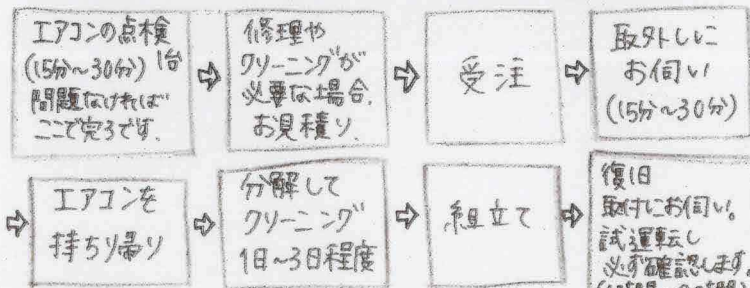 エアコンの点検
(15分〜30分) 1台
問題なければ
ここで完了です。
修理や
クリーニングが
必要な場合、
お見積り。
受注
取外しに
お伺い
(15分〜30分)
エアコンを
持ちり帰り
分解して
クリーニング
1日〜3日程度
組立て
復旧
取付にお伺い。
試運転し
必ず確認します。